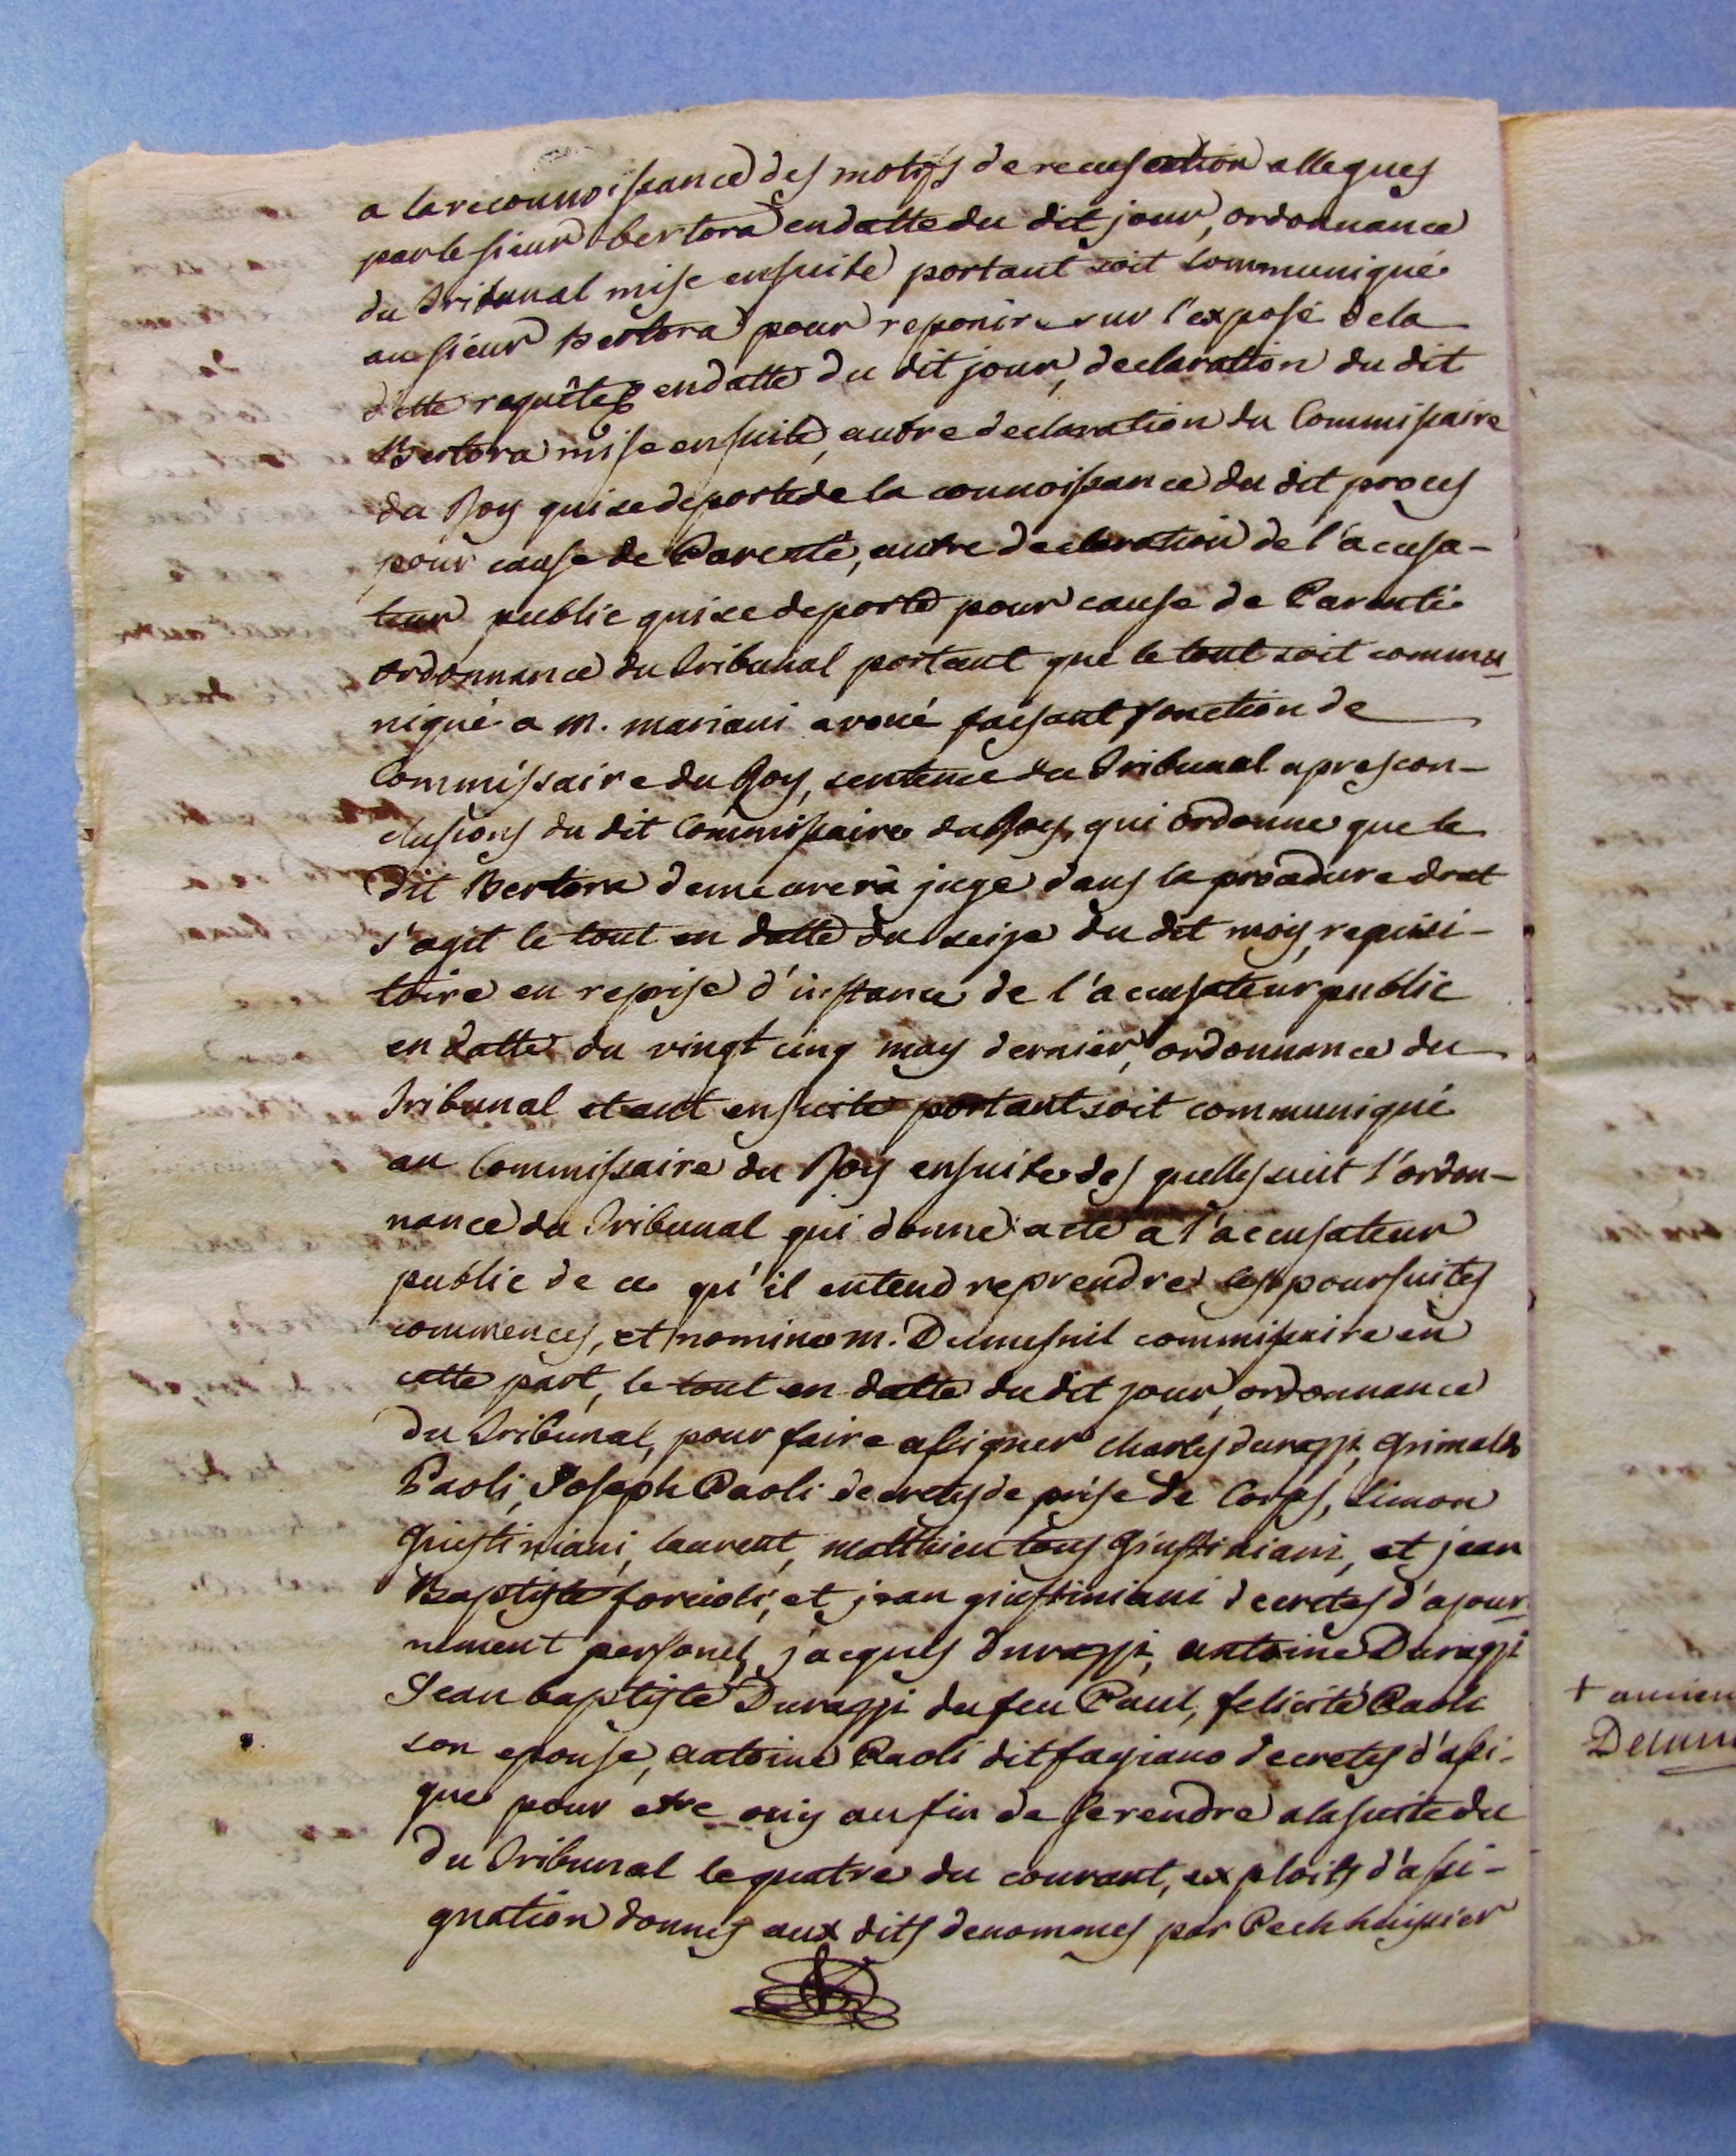 a la reconnoissance des motifs de recusation allegues
par le sieur bertora en datte du dit jour, ordonnance
du Tribunal mise ensuite portant soit communiqué
au sieur Bertora pour reponire sur l'exposé de la
ditte requête en datte du dit jour, declaration du dit
Bertora mise ensuite, autre declaration du Commissaire
du Roy qui se deporte de la connoissance du dit proces
pour cause de Parenté, autre declaration de l'acusa-
teur public qui se deporte pour cause de Parenté
ordonnance du Tribunal portant que le tout soit commu-
niqué a m. mariani avoué faisant fonction de
Commissaire du Roy, sentence du Tribunal apres con-
clusions du dit Commissaire du Roy, qui ordonne que le
dit Bertora demeurera juge dans la procedure dont
s'agit le tout en datte du seize du dit mois, requisi-
toire en reprise d'instance de l'accusateur public
en datte du vingt cinq may dernier, ordonnance du
Tribunal etant ensuite portant soit communiqué
au Commissaire du Roy ensuite des quelles suit l'ordon-
nance du Tribunal qui donne acte a l'accusateur
public de ce qu'il entend reprendre les poursuites
commences, et nomine m. Dumesnil commissaire en
cette part, le tout en datte du dit jour, ordonnance
du Tribunal, pour faire assigner charles durazzi, Grimaldo
Paoli, Joseph Paoli decretes de prise de Corps, Simon
Giustiniani, laurent, matthieu tous Giustiniani, et jean
Baptiste forcioli, et jean giustiniani decretes d'ajour-
nement personel, jacques durazzi, antoine Durazzi
Jean baptiste Durazzi du feu Paul, felicité Paoli
son epouse, antoine Paoli dit fagiano decretes d'assi-
gne pour etre ouis au fin de se rendre a la suite du
du Tribunal le quatre du courant, exploits d'assi-
gnation donnes aux dits denommes par Pech huissier
+ ancien